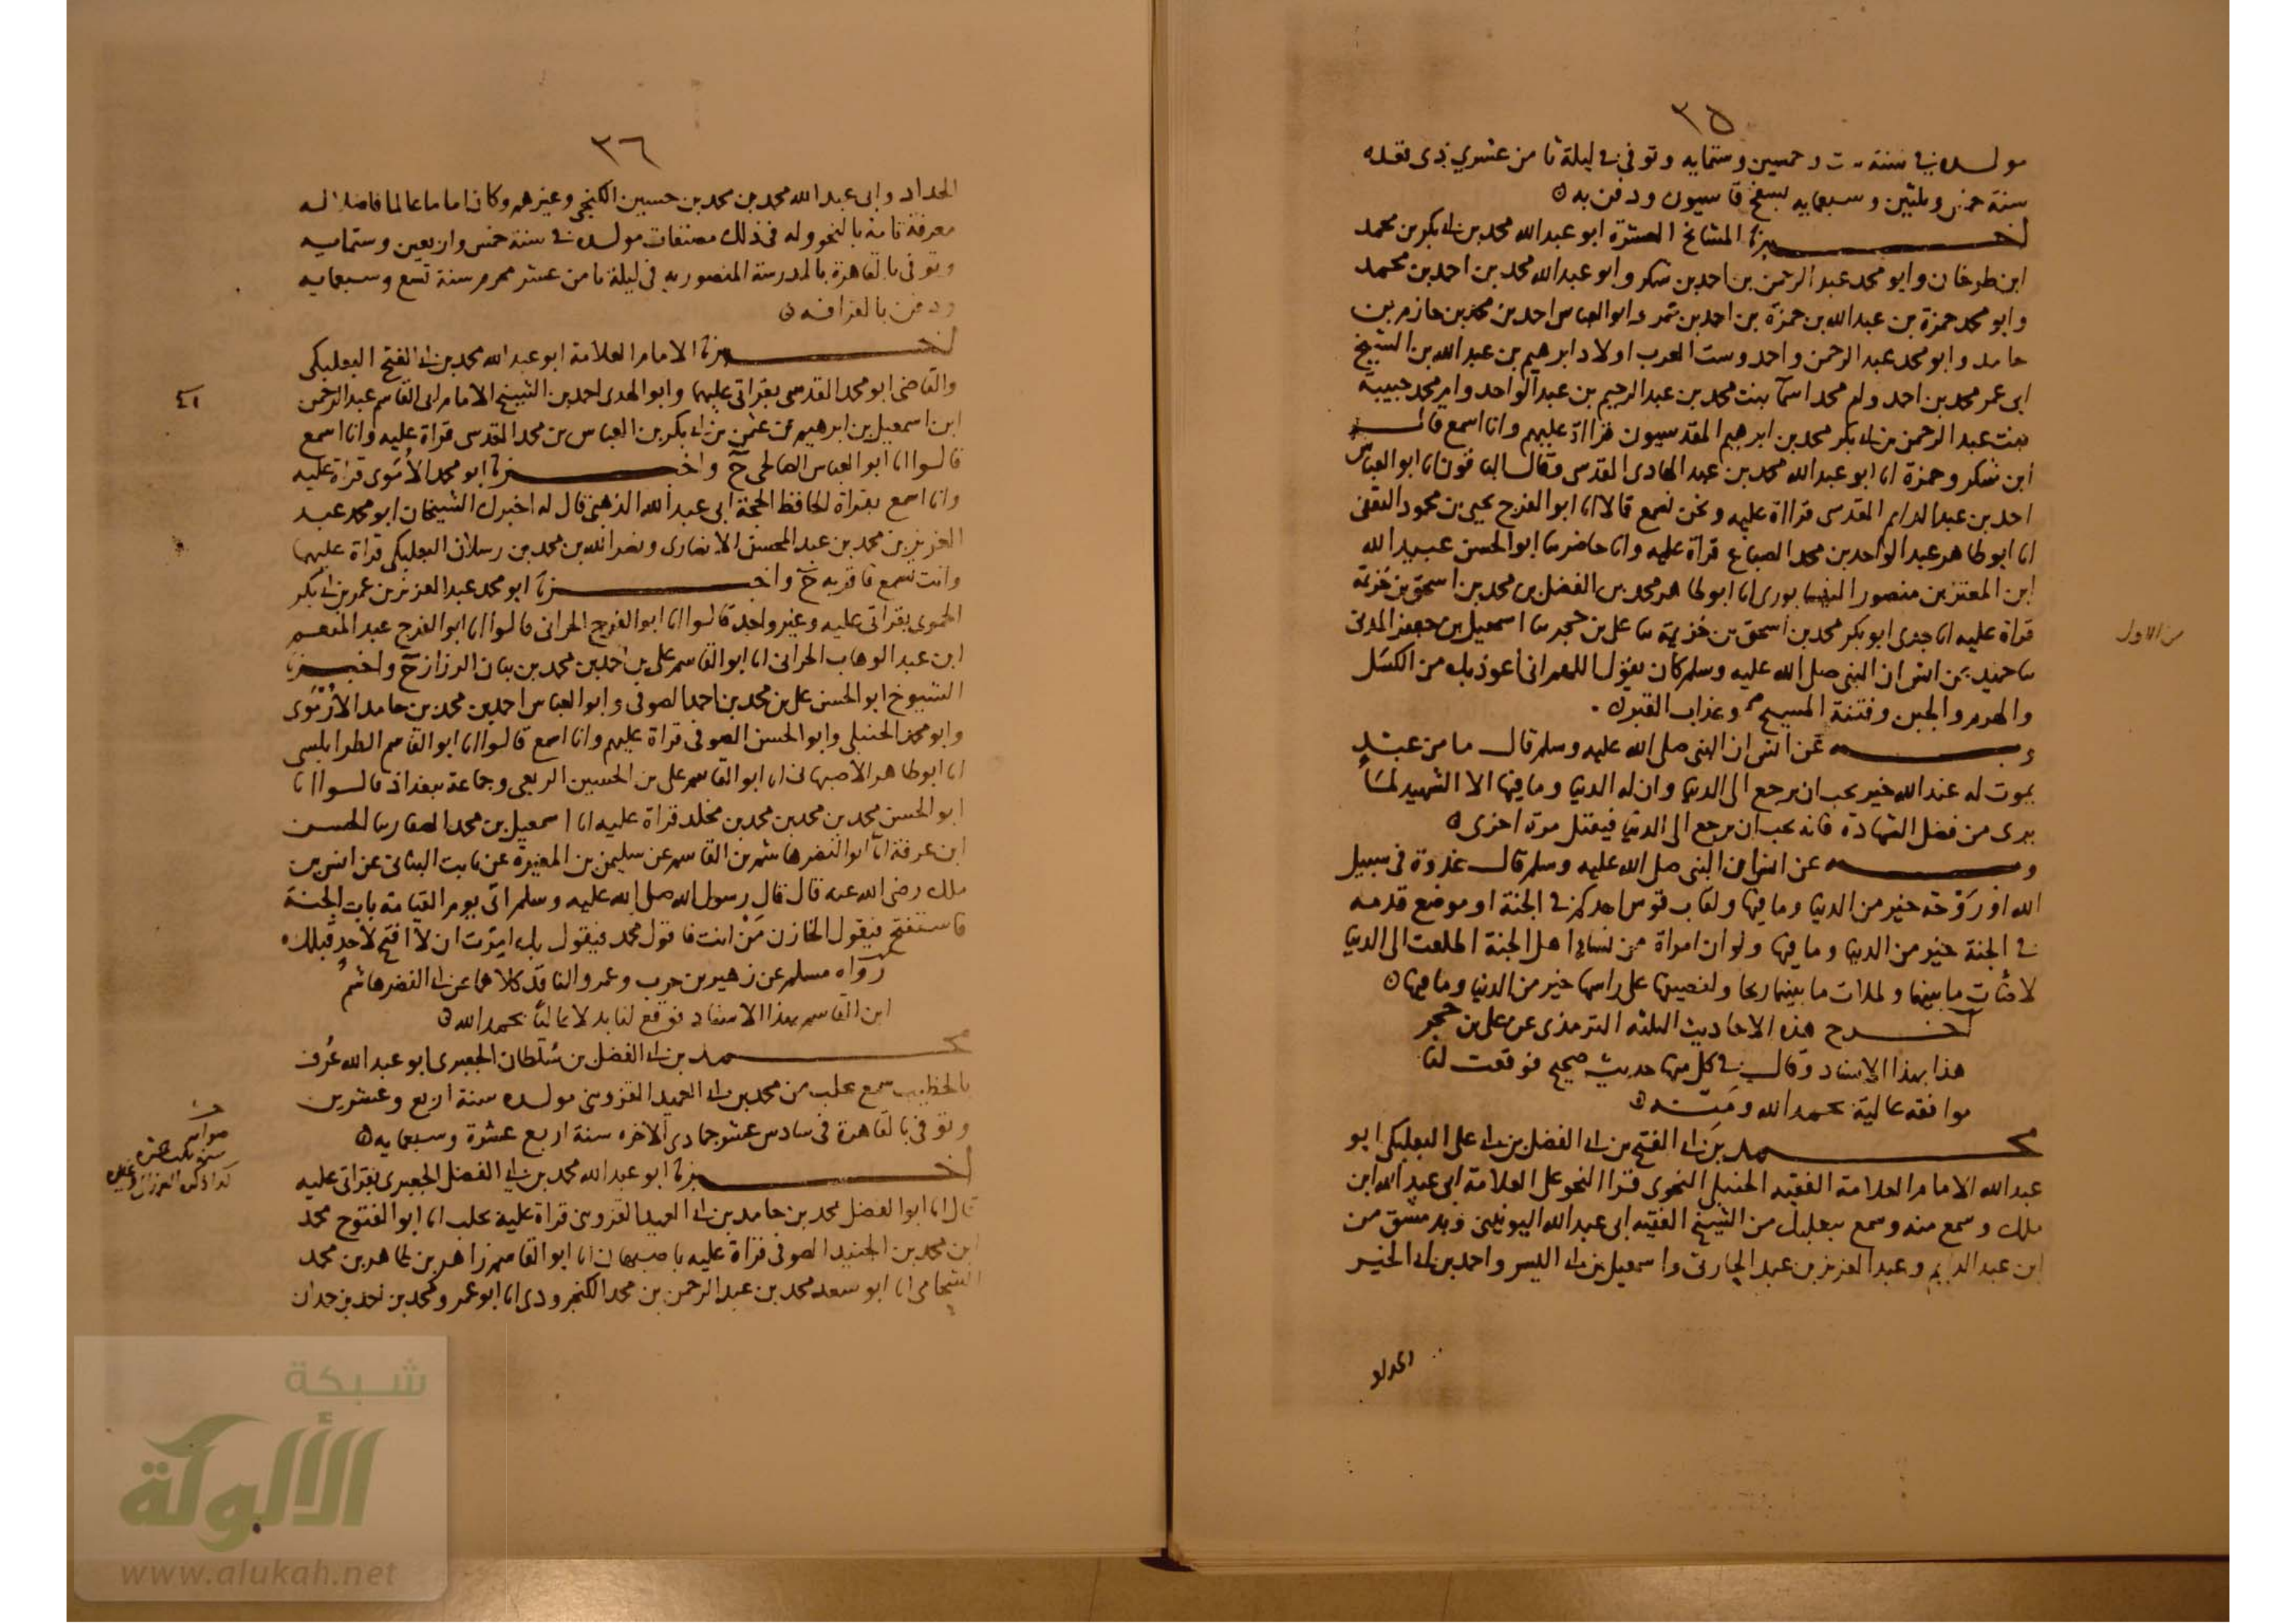 ٣٥
مولده في سنة ست وخمسين وستمايه وتوفي في ليلة ثامن عشري ذي قعده
سنة خمس وثلثين وسبعمايه بسفح قاسيون ودفن به
اخـــبرنا المشائخ العشرة ابو عبد الله محمد بن ابي بكر بن محمد
ابن طرخان وابو محمد عبد الرحمن بن احمد بن شكر وابو عبد الله محمد بن احمد بن محمد
وابو محمد حمزة بن عبد الله بن حمزة بن احمد بن عمر وابو العباس احمد بن محمد بن حازم بن
حامد وابو محمد عبد الرحمن واحمد وست العرب اولاد ابرهيم بن عبد الله بن الشيخ
ابي عمر محمد بن احمد وام محمد اسما بنت محمد بن عبد الرحيم بن عبد الواحد وام محمد حبيبة
بنت عبد الرحمن بن ابي بكر محمد بن ابرهيم المقدسيون قراة عليهم وانا اسمع قال
ابن شكر وحمزة انا ابو عبد الله محمد بن عبد الهادي المقدسي وقال الباقون انا ابو العباس
احمد بن عبد الدايم المقدسي قراة عليه ونحن نسمع قالا انا ابو الفرج يحيى بن محمود الثقفي
انا ابو طاهر عبد الواحد بن محمد الصباغ قراة عليه وانا حاضر نا ابو الحسن عبيد الله
ابن المعتز بن منصور النيسابوري انا ابو طاهر محمد بن الفضل بن محمد بن اسحق بن خزيمة
قراة عليه انا جدي ابو بكر محمد بن اسحق بن خزيمة نا علي بن حجر نا اسمعيل بن جعفر المدني
من الاول
نا حميد عن انس ان النبي صلى الله عليه وسلم كان يقول اللهم اني اعوذ بك من الكسل
والهرم والجبن وفتنة المسيح وعذاب القبر
وبـــه عن انس ان النبي صلى الله عليه وسلم قال ما من عبد
يموت له عند الله خير يحب ان يرجع الى الدنيا وان له الدنيا وما فيها الا الشهيد لما
يرى من فضل الشهادة فانه يحب ان يرجع الى الدنيا فيقتل مرة اخرى
وبـــه عن انس ان النبي صلى الله عليه وسلم قال غدوة في سبيل
الله او روحة خير من الدنيا وما فيها ولقاب قوس احدكم في الجنة او موضع قدمه
في الجنة خير من الدنيا وما فيها ولو ان امراة من نساء اهل الجنة اطلعت الى الدنيا
لاضات ما بينهما ولملات ما بينهما ريحا ولنصيفها على راسها خير من الدنيا وما فيها
اخـــرج هذه الاحاديث الثلثة الترمذي عن علي بن حجر
هذا بهذا الاسناد وقال في كل منها حديث صحيح فوقعت لنا
موافقة عالية بحمد الله ومنه
محـــمد بن ابي الفتح بن ابي الفضل بن ابي علي البعلبكي ابو
عبد الله الامام العلامة الفقيه الحنبلي النحوي قرا النحو على العلامة ابي عبد الله ابن
ملك وسمع منه وسمع ببعلبك من الشيخ الفقيه ابي عبد الله اليونيني وبدمشق من
ابن عبد الدايم وعبد العزيز بن عبد الحارثي واسمعيل بن ابي اليسر واحمد بن ابي الخير
الحداد
٣٦
الحداد وابي عبد الله محمد بن محمد بن حسين الكنجي وغيرهم وكان اماما عالما فاضلا له
معرفة تامة بالنحو وله في ذلك مصنفات مولده في سنة خمس واربعين وستمايه
وتوفي بالقاهرة بالمدرسة المنصوريه في ليلة ثامن عشر محرم سنة تسع وسبعمايه
ودفن بالقرافه
اخـــبرنا الامام العلامة ابو عبد الله محمد بن ابي الفتح البعلبكي
والقاضي ابو محمد القدسي بقراتي عليهما وابو الهدى احمد بن الشيخ الامام ابي القاسم عبد الرحمن
٤١
ابن اسمعيل بن ابرهيم بن عثمن بن ابي بكر بن العباس بن محمد المقدسي قراة عليه وانا اسمع
قالوا انا ابو العباس الصالحي ح واخـــبرنا ابو محمد الاموي قراة عليه
وانا اسمع بقراة الحافظ الحجة ابي عبد الله الذهبي قال له اخبرك الشيخان ابو محمد عبد
العزيز بن محمد بن عبد المحسن الانصاري ونصر الله بن محمد بن رسلان البعلبكي قراة عليهما
وانت تسمع فاقر به ح واخـــبرنا ابو محمد عبد العزيز بن عمر بن ابي بكر
الحموي بقراتي عليه وغير واحد قالوا انا ابو الفرج الحراني قالوا انا ابو الفرج عبد المنعم
ابن عبد الوهاب الحراني انا ابو القاسم علي بن احمد بن محمد بن بيان الرزاز ح واخـــبرنا
الشيوخ ابو الحسن علي بن محمد بن احمد الصوفي وابو العباس احمد بن محمد بن حامد الارموي
وابو محمد الحنبلي وابو الحسن الصوفي قراة عليهم وانا اسمع قالوا انا ابو القاسم الطرابلسي
انا ابو طاهر الاصبهاني انا ابو القاسم علي بن الحسين الربعي وجماعة ببغداد قالوا انا
ابو الحسن محمد بن محمد بن محمد بن مخلد قراة عليه انا اسمعيل بن محمد الصفار نا الحسن
ابن عرفة انا ابو النضر هاشم بن القاسم عن سليمن بن المغيرة عن ثابت البناني عن انس بن
ملك رضي الله عنه قال قال رسول الله صلى الله عليه وسلم اتي يوم القيامة باب الجنة
فاستفتح فيقول الخازن من انت فاقول محمد فيقول بك امرت ان لا افتح لاحد قبلك
رواه مسلم عن زهير بن حرب وعمرو الناقد كلاهما عن ابي النضر هاشم
ابن القاسم بهذا الاسناد فوقع لنا بدلا عاليا بحمد الله
محـــمد بن ابي الفضل بن سلطان الجعبري ابو عبد الله عرف
بالخطيب سمع بحلب من محمد بن ابي العميد القزويني مولده سنة اربع وعشرين
وتوفي بالقاهرة في سادس عشر جمادى الاخره سنة اربع عشرة وسبعمايه
صوابه
سنة ثلث عشره
كذا ذكره البرزالي وغيره
اخـــبرنا ابو عبد الله محمد بن ابي الفضل الجعبري بقراتي عليه
قال انا ابو الفضل محمد بن حامد بن ابي العميد القزويني قراة عليه بحلب انا ابو الفتوح محمد
ابن محمد بن الجنيد الصوفي قراة عليه باصبهان انا ابو القاسم زاهر بن طاهر بن محمد
الشحامي انا ابو سعد محمد بن عبد الرحمن بن محمد الكنجرودي انا ابو عمرو محمد بن احمد بن حمدان
شبكة
الألوكة
www.alukah.net